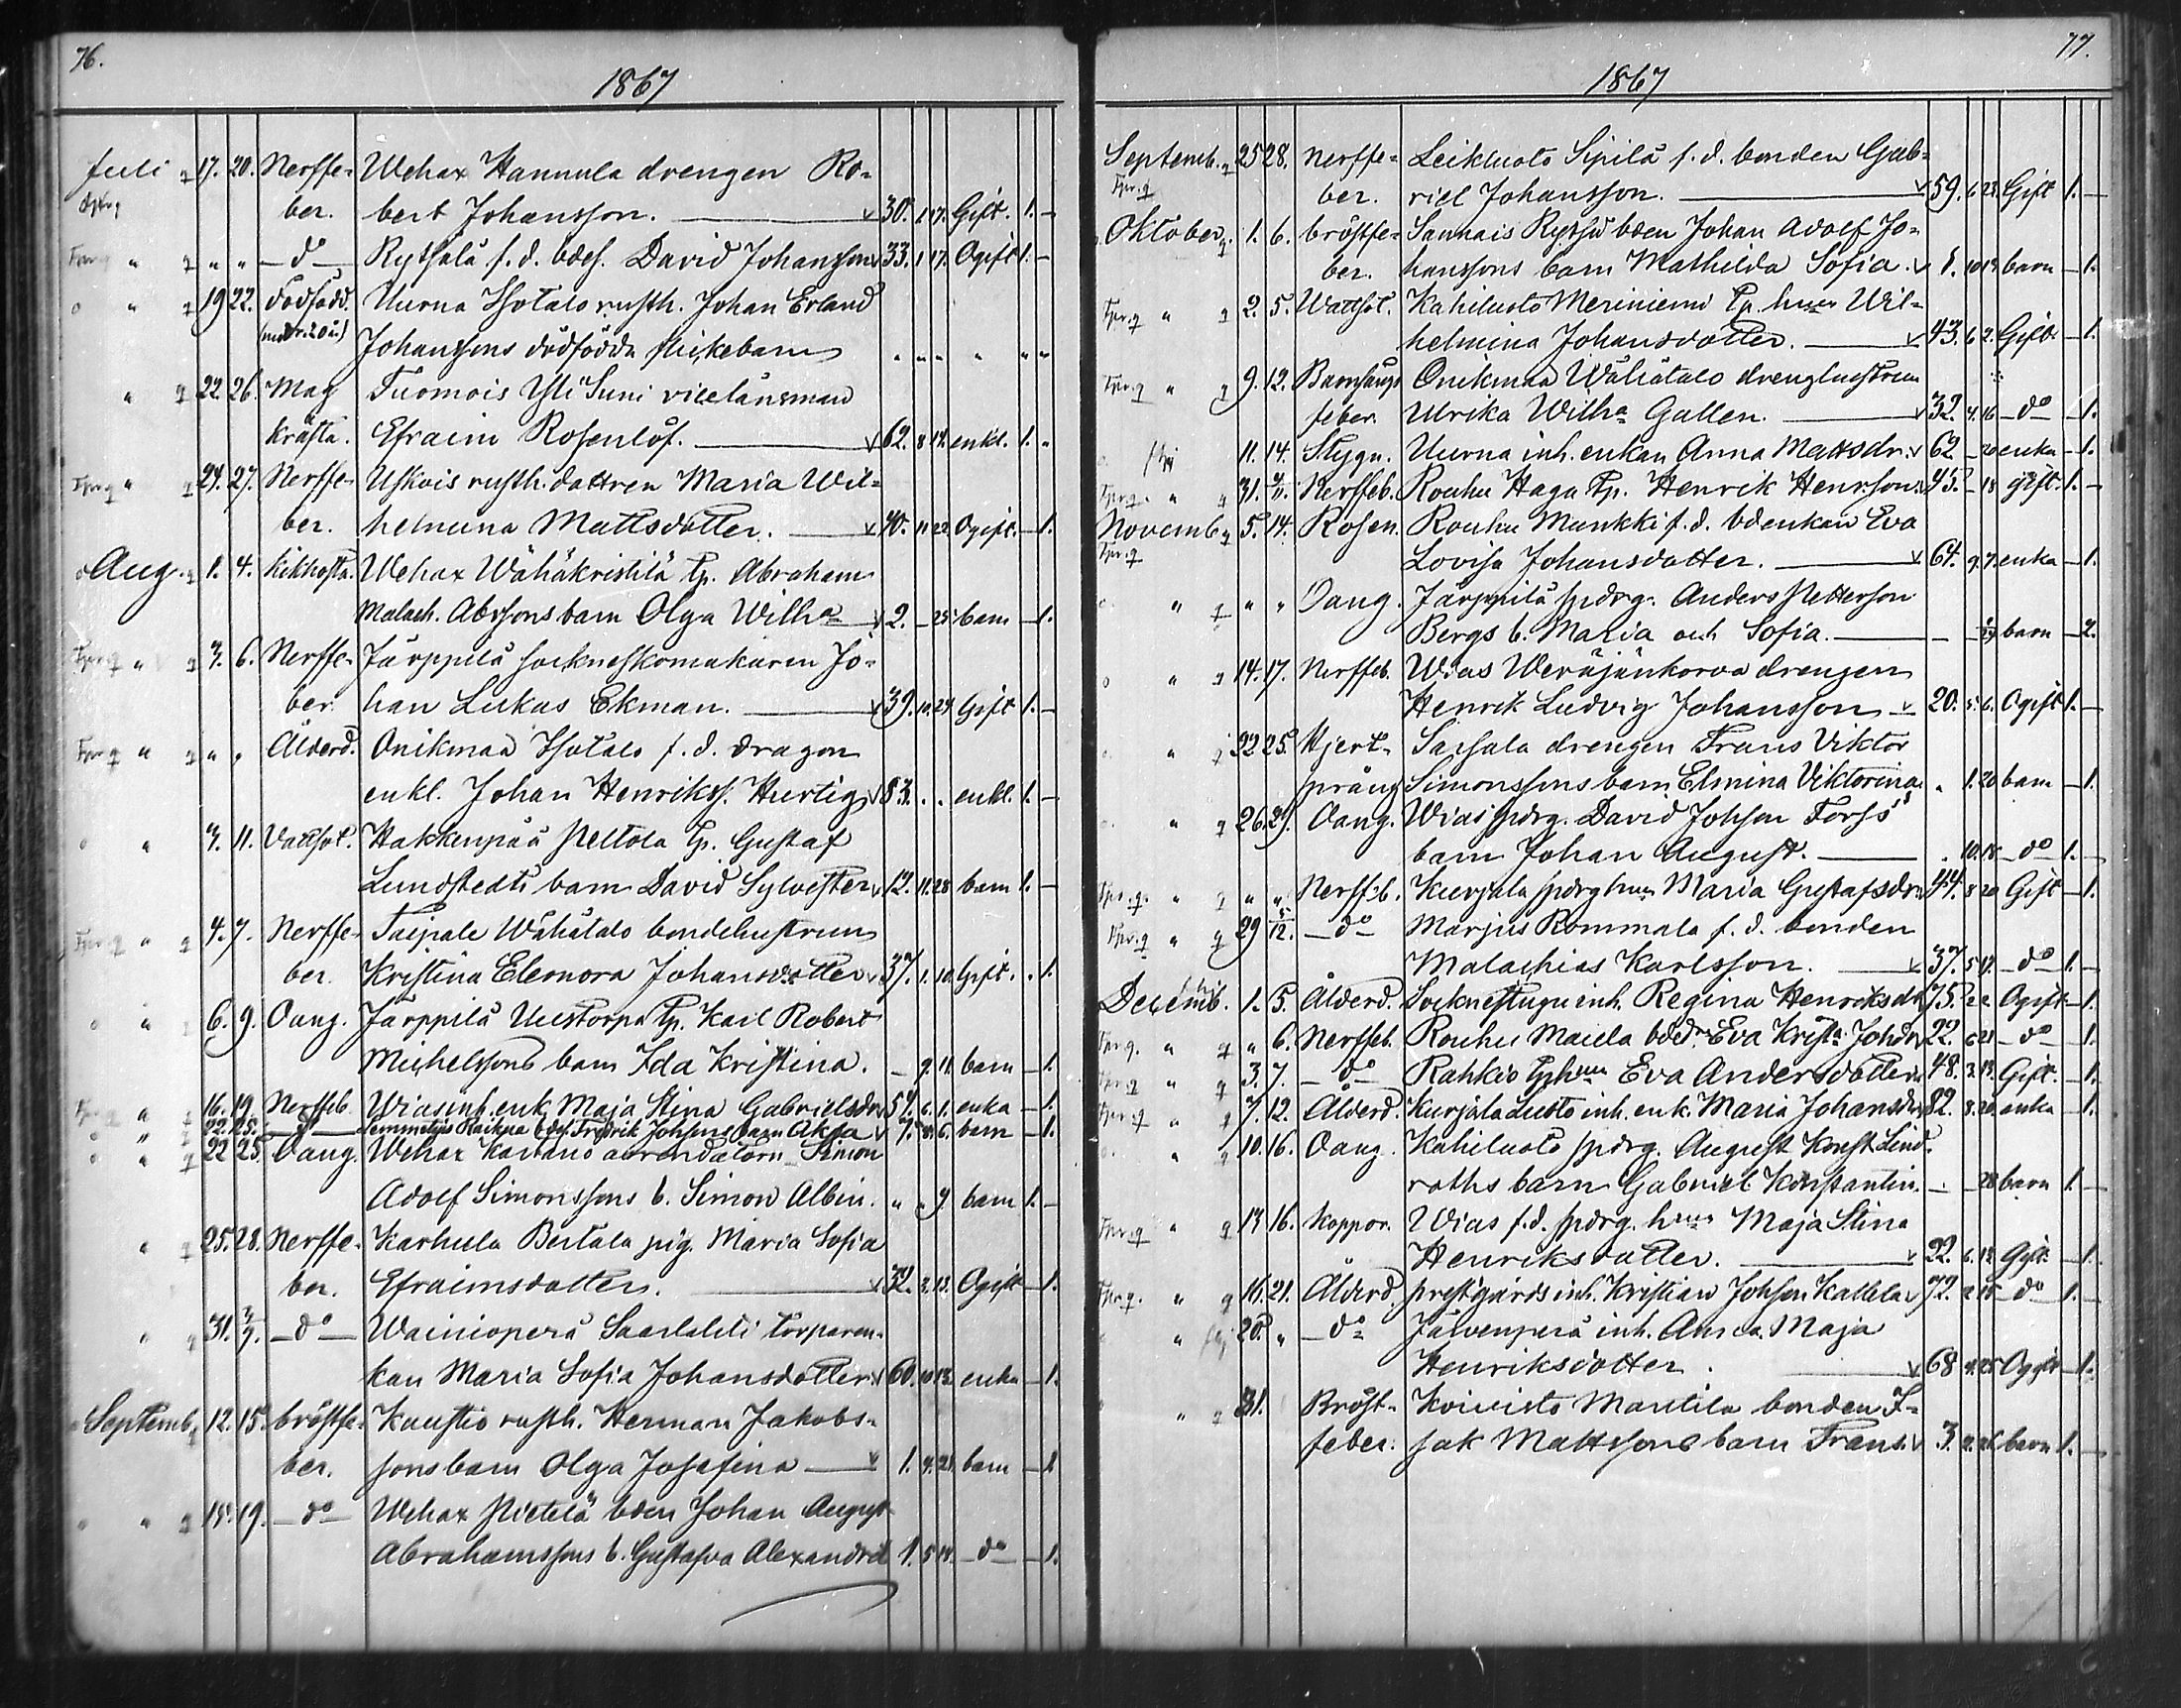 76.
1867
Juli 17. 20. Nerffe- Wehax Hannula drengen Ro-
ber. bert Johansson. 30. 1. 17. Gift. 1. –
" " " – do – Rytsälä f. d. bdes. David Johansson 33. 1. 17. Ogift 1. –
" 19 22. Dödfödd. Uurna Isotalo rusth. Johan Erland
Johanssons dödfödda flickebarn " " " " " "
" 22 26. Mag Tuomois Yli Suni vicelänsman
kräfta. Efraim Rosenlöf. 62. 8 14. enkl. 1. "
" 24. 27. Nerffe- Uskois rusth. dottren Maria Wil-
ber. helmina Mattsdotter. 40. 11 22. Ogift. – 1.
Aug. 1. 4. Kikhosta. Wehax Wähäkristilä tp. Abraham
Malach. Abrssons barn Olga Wilha 2. – 25 barn – 1.
" 3. 6. Nerffe- Järppilä sockneskomakaren Jo-
ber. han Lukas Ekman. 39. 10. 29. Gift 1. –
" " " Ålderd. Onikmaa Isotalo f. d. dragon
enkl. Johan Henrikss. Hurtig 83. . . enkl. 1. –
" 7. 11. Vattsot. Hakkenpää Peltola tp. Gustaf
Lundstedts barn David Sylvester 12. 11. 28 barn 1. –
" 4. 7. Nerffe- Taipale Wähätalo bondehustrun
ber. Kristina Eleonora Johansdotter 37. 1. 10. Gift. . 1.
" 6. 9. Oang. Järppilä Uustorpa tp. Karl Robert
Michelssons barn Ida Kristina. – 9. 11 barn – 1.
" 16. 19. Nerffeb. Wias inh. enk. Maja Stina Gabrielsdr 57. 6. 1. enka – 1.
" 22. 25. – do – Lemmetyis Raikna bdes. Fredrik Johssons barn Akta 7. 8. 6. barn – 1.
" 22 25. Oang. Wehax Kartano arrendatorn Simon
Adolf Simonssons b. Simon Albin. " " 9 barn 1. –
" 25. 28. Nerffe- Karhula Bertala pig. Maria Sofia
ber. Efraimsdotter. 32. 3. 13. Ogift – 1.
" 31. 3/9. – do – Wainionperä Saarlahti torparen-
kan Maria Sofia Johansdotter 60. 10 13. enka – 1.
Septemb. 12. 15. bröstfe- Kaustio rusth. Herman Jakobs-
ber. sons barn Olga Josefina 1. 4. 21. barn – 1
" 15. 19. – do – Wehax Pietilä bden Johan August
Abrahamssons b. Gustafva Alexandra 1. 5 14. – do – 1.
77.
1867
Septemb. 25 28. Nerffe- Leikluoto Sipilä f. d. bonden Gab-
ber. riel Johansson. 59. 6 23. Gift 1. –
Oktober 1. 6. bröstfe- Sannais Rytsy bden Johan Adolf Jo-
ber. hanssons barn Mathilda Sofia. 1. 10 19. barn – 1.
" 2. 5. Wattsot. Kahiluoto Meriniemi tp. hun Wil-
helmina Johansdotter. 43. 6 2. Gift. – 1.
" 9. 12. Barnsängs Onikmaa Wähätalo drenghustrun
feber. Ulrika Wilha Gallen. 32. 4. 16 – do – 1.
11. 14. Stygn. Uurna inh. enkan Anna Mattsdr. 62 – 20 enka – 1.
" 31. Nerffeb. Rouhu Haga tp. Henrik Henrsson. 45. – 18 gift. 1. –
Novemb. 5. 14. Rosen. Rouhu Munkki f. d. bdenkan Eva
Lovisa Johansdotter. 64. 9. 7. enka – 1.
" " " Oang. Järppilä spdrg. Anders Petterson
Bergs b. Maria och Sofia. – barn – 2.
" 14. 17. Nerffeb. Wias Weräjänkorva drengen
Henrik Ludvig Johansson 20. 5. 6. Ogift 1. –
" 22 25. Hjert- Saisala drengen Frans Viktor
språng Simonssons barn Elmina Viktorina " 1. 20 barn – 1.
" 26. 29. Oang. Wias spdrg. David Johsson Forss's
barn Johan August. . 10. 18 – do – 1. –
" " " Nerffeb. Kurjala spdrghun Maria Gustafsdr 44. 8 20 Gift – 1.
" 29 5/12. – do – Marjus Rommala f. d. bonden
Malachias Karlsson. 37. 5 17. – do – 1. –
Decemb. 1. 5. Ålderd. Sockenstugu inh. Regina Henriksdr 75. 2 2. Ogift – 1.
" " 6. Nerffeb. Rouhu Maula bdedr Eva Krista Johdr 22. 6 21 – do – 1.
" 3. 7. – do – Rahkio tphun Eva Andersdotter 48. 3. 13. Gift. – 1.
" 7. 12. Ålderd. Kurjala Luoto inh. enk. Maria Johansdr 82. 8. 20. enka – 1.
" 10. 16. Oang. Kahiluoto spdrg. August Konst Lind-
roths barn Gabriel Konstantin. – – 28 barn 1. –
" 13 16. Koppor. Wias f. d. spdrg. hun Maja Stina
Henriksdotter. 22. 6. 12 Gift. – 1.
" 16. 21. Ålderd. prestgårds inh. Kristian Johsson Kallela 72. 2 15 – do – 1. –
" 20. " – do – Jälvenperä inh. Anna Maja
Henriksdotter. 68 4. 25 Ogift – 1.
" 31. Bröst- Koivisto Marttila bonden I-
feber. sak Mattssons barn Frans. 3. 2. 26 barn 1. –